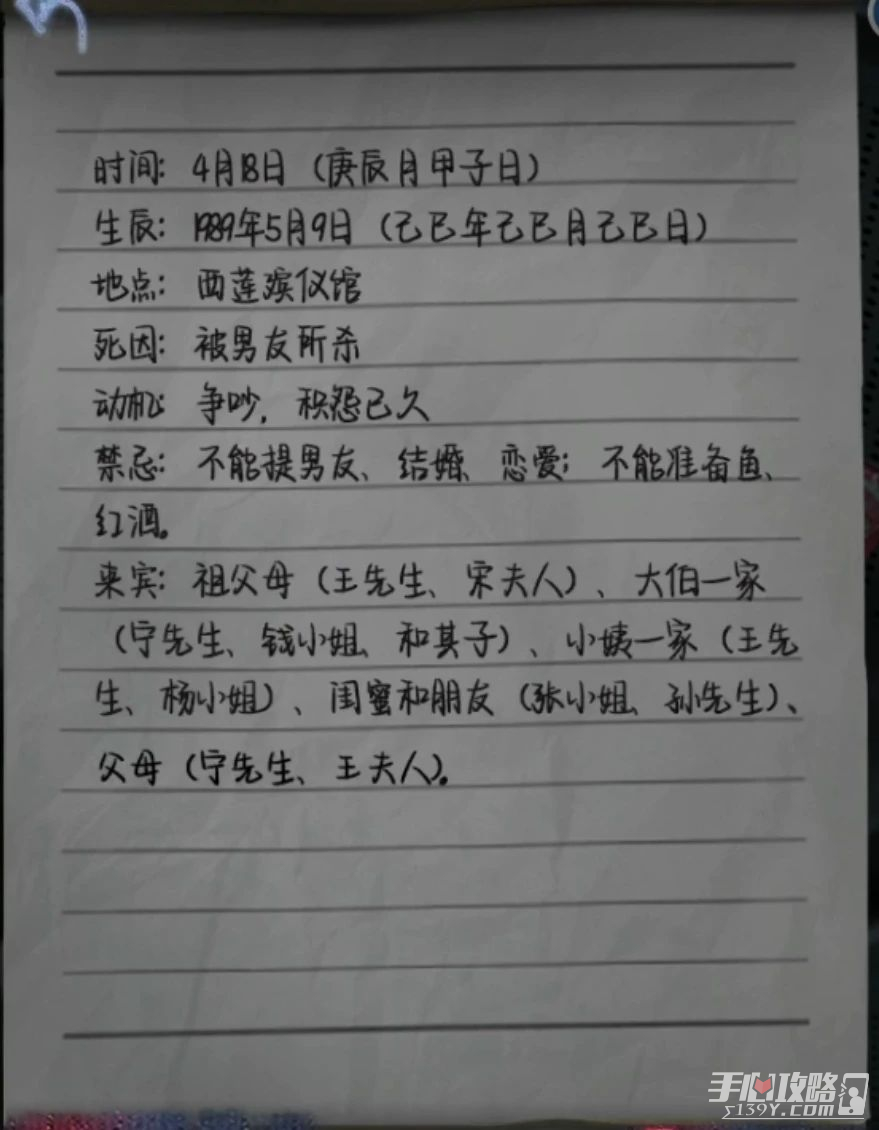 时间：4月18日（庚辰月甲子日）
生辰：1989年5月9日（己巳年己巳月己巳日）
地点：西莲殡仪馆
死因：被男友所杀
动机：争吵，积怨已久
禁忌：不能提男友、结婚、恋爱；不能准备鱼、
红酒。
来宾：祖父母（王先生、宋夫人）、大伯一家
（宁先生、钱小姐、和其子）、小姨一家（王先
生、杨小姐）、闺蜜和朋友（张小姐、孙先生）、
父母（宁先生、王夫人）。
手心攻略
S139Y.com